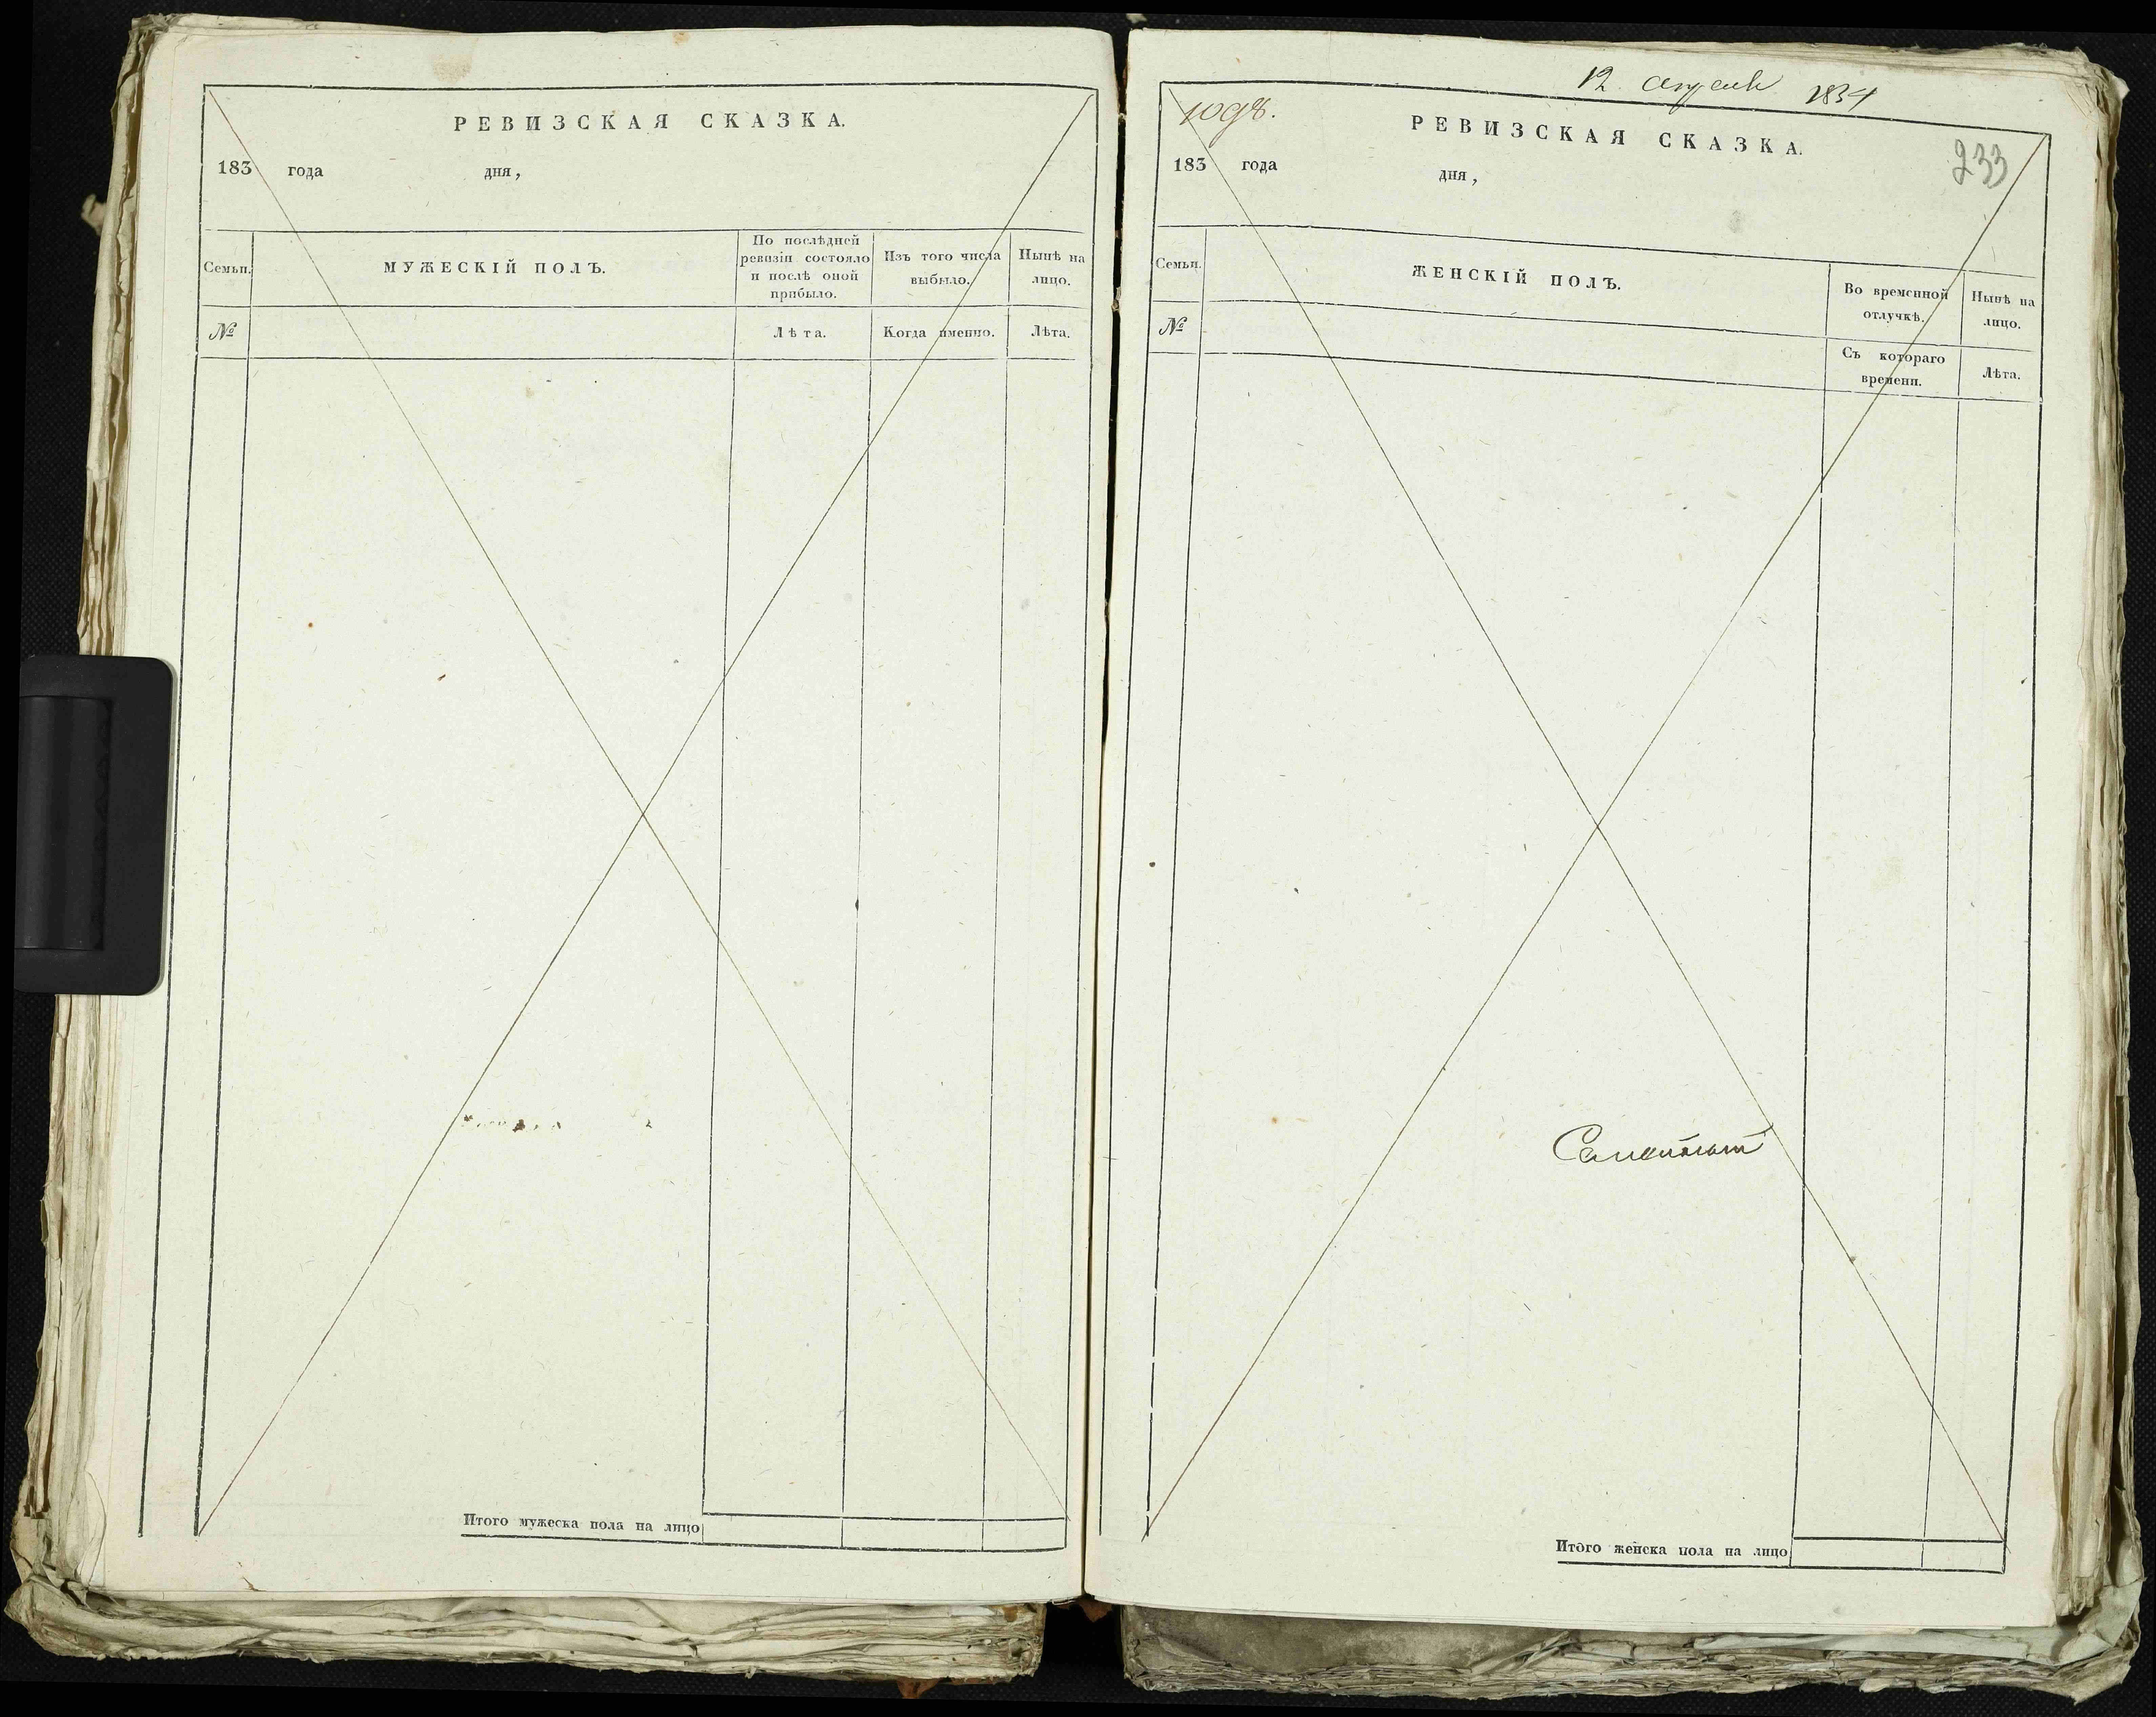 РЕВИЗСКАЯ СКАЗКА.
183 года дня,
Семьи.
МУЖЕСКІЙ ПОЛЪ.
По послѣдней
ревизіи состояло
и послѣ оной
прибыло.
Изъ того числа
выбыло.
Нынѣ на
лицо.
№
Лѣта.
Когда именно.
Лѣта.
Итого мужеска пола на лицо
12 апреля 1834
233
РЕВИЗСКАЯ СКАЗКА.
183 года дня,
Семьи.
ЖЕНСКІЙ ПОЛЪ.
Во временной
отлучкѣ.
Нынѣ на
лицо.
№
Съ котораго
времени.
Лѣта.
Итого женска пола на лицо